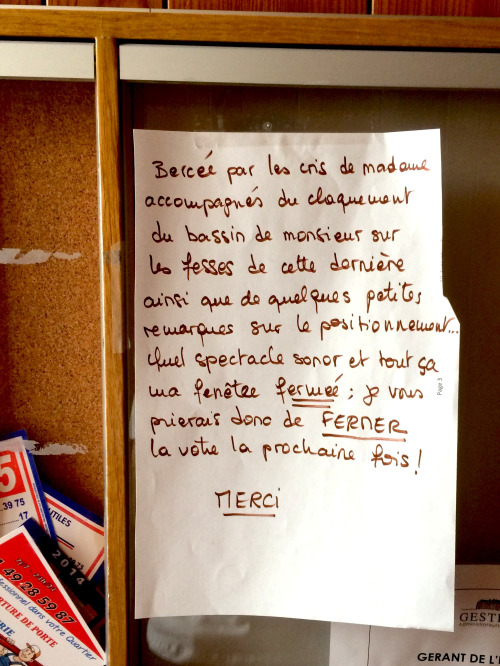 Bercée par les cris de madame
accompagnés du claquement
du bassin de monsieur sur
les fesses de cette dernière
ainsi que de quelques petites
remarques sur le positionnement...
quel spectacle sonor et tout ça
ma fenêtre fermée ; je vous
prierais donc de FERMER
la votre la prochaine fois !
MERCI
Page 3
5
.39 75
...17
UTILES
2014
49 28 59 87
dans votre Quartier
RTURE DE PORTE
GESTI
GERANT DE L'I